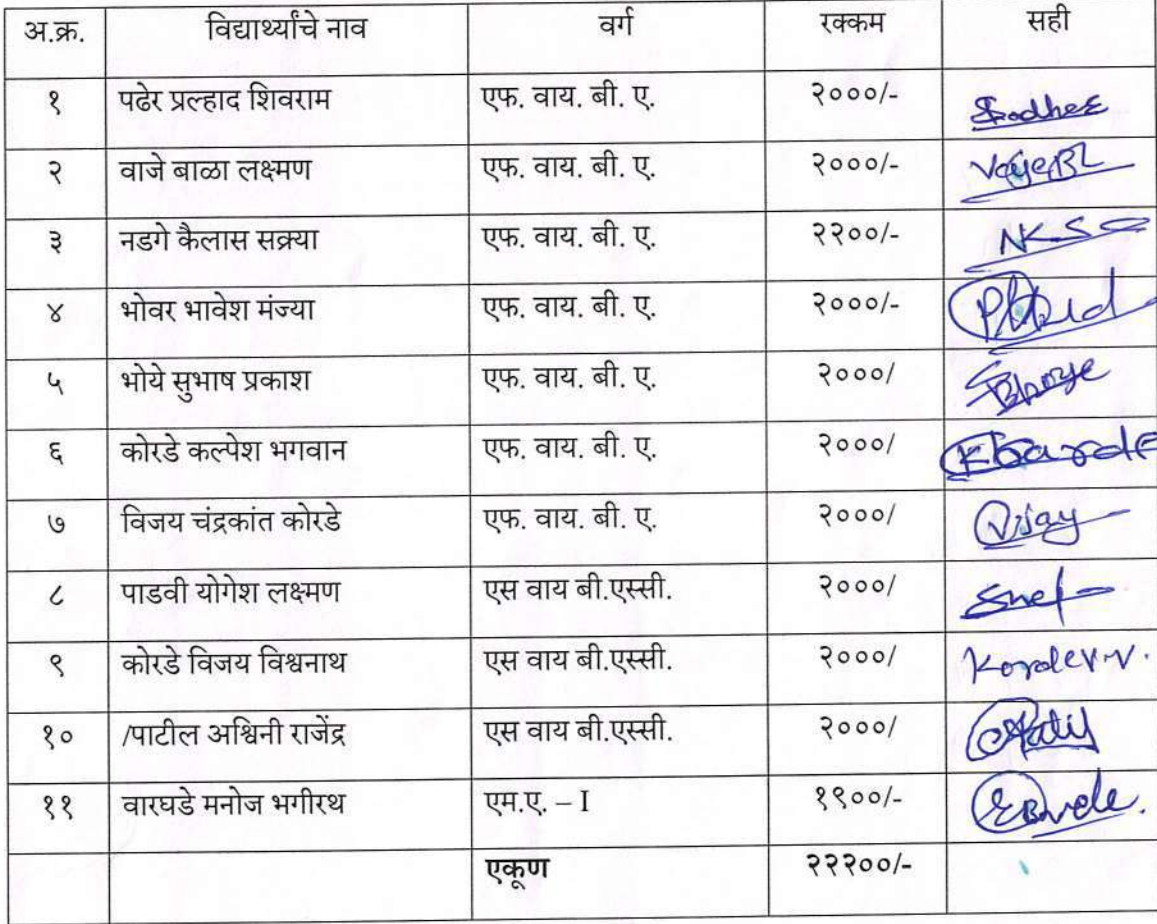 अ.क्र. विद्यार्थ्यांचे नाव वर्ग रक्कम सही
१ पढेर प्रल्हाद शिवराम एफ. वाय. बी. ए. २०००/-
२ वाजे बाळा लक्ष्मण एफ. वाय. बी. ए. २०००/- VajeBL
३ नडगे कैलास सक्र्या एफ. वाय. बी. ए. २२००/- NKS
४ भोवर भावेश मंज्या एफ. वाय. बी. ए. २०००/-
५ भोये सुभाष प्रकाश एफ. वाय. बी. ए. २०००/ Bhoye
६ कोरडे कल्पेश भगवान एफ. वाय. बी. ए. २०००/
७ विजय चंद्रकांत कोरडे एफ. वाय. बी. ए. २०००/ Vijay
८ पाडवी योगेश लक्ष्मण एस वाय बी.एस्सी. २०००/
९ कोरडे विजय विश्वनाथ एस वाय बी.एस्सी. २०००/ Korde V.V.
१० /पाटील अश्विनी राजेंद्र एस वाय बी.एस्सी. २०००/
११ वारघडे मनोज भगीरथ एम.ए. – I १९००/-
एकूण २२२००/-